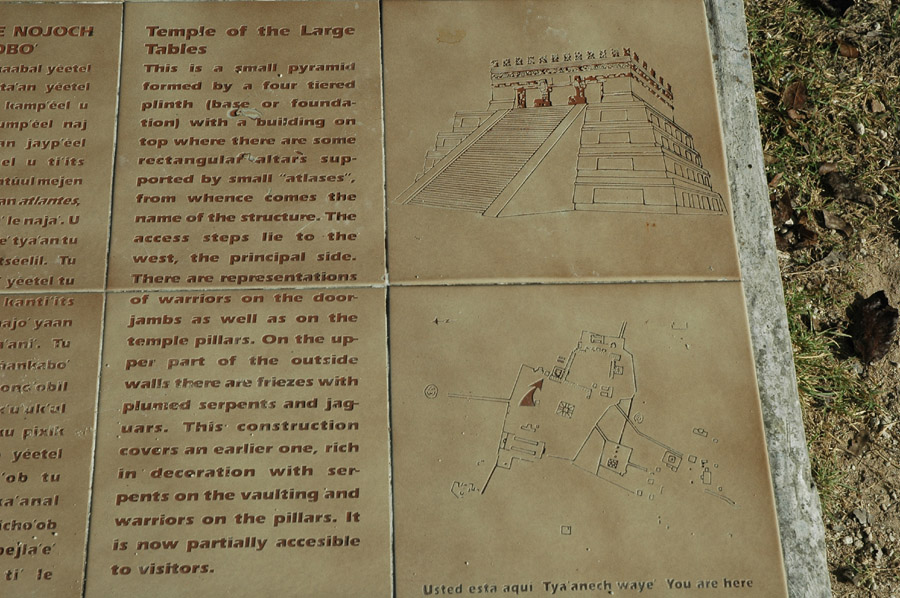 E NOJOCH
OBO'
kaabal yéetel
ta'an yéetel
kamp'éel u
ump'éel naj
an jayp'éel
el u ti'its
ntúul mejen
an atlantes,
' le naja'. U
e' tya'an tu
tséelil. Tu
' yéetel tu
kanti'its
najo' yaan
a'ani'. Tu
yéetel
'ob tu
ka'anal
icho'ob
pejla'e'
ti' le
Temple of the Large
Tables
This is a small pyramid
formed by a four tiered
plinth (base or founda-
tion) with a building on
top where there are some
rectangular altars sup-
ported by small "atlases",
from whence comes the
name of the structure. The
access steps lie to the
west, the principal side.
There are representations
of warriors on the door-
jambs as well as on the
temple pillars. On the up-
per part of the outside
walls there are friezes with
plumed serpents and jag-
uars. This construction
covers an earlier one, rich
in decoration with ser-
pents on the vaulting and
warriors on the pillars. It
is now partially accesible
to visitors.
Usted esta aquí Tya'anech waye' You are here